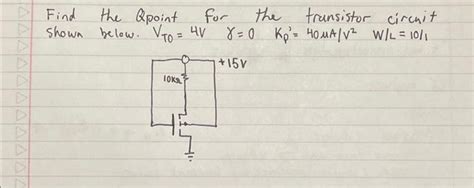 Find the Qpoint for the transistor circuit
shown below. V_TO = 4V γ = 0 Kp' = 40μA/V² W/L = 10/1
+15V
10KΩ